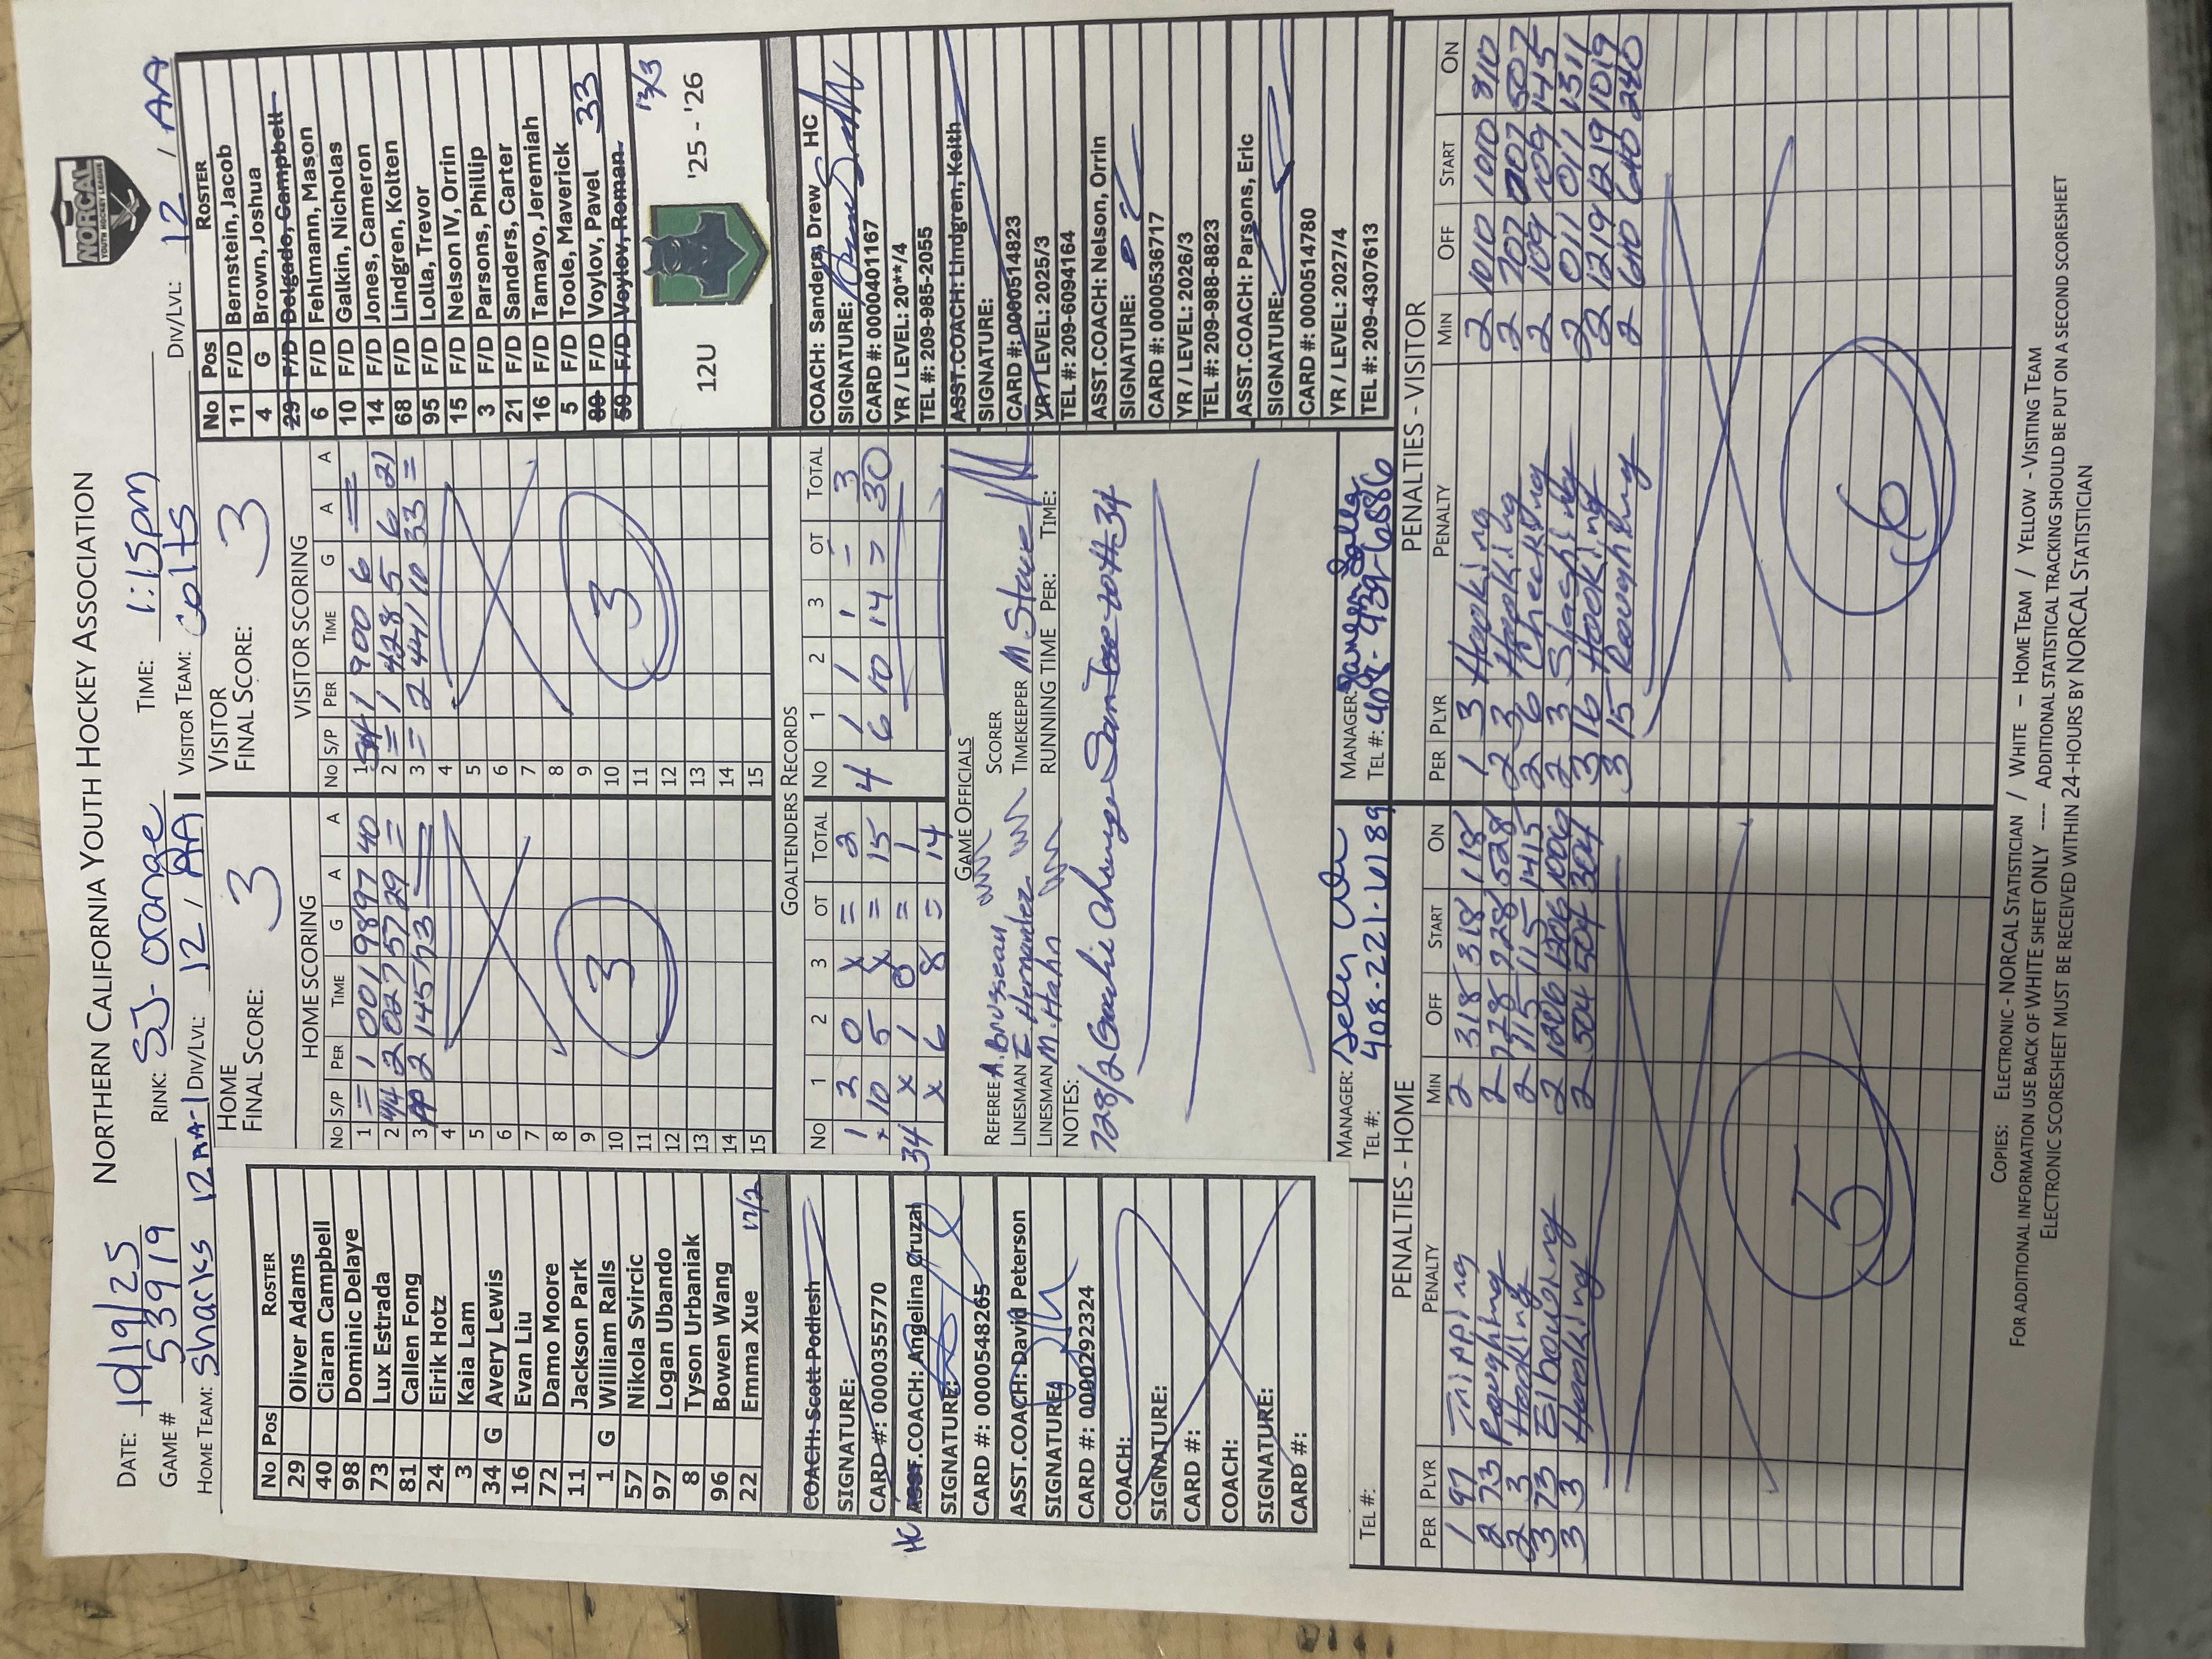 NORTHERN CALIFORNIA YOUTH HOCKEY ASSOCIATION
NORCAL
YOUTH HOCKEY LEAGUE
DATE: 10/19/25 RINK: SJ-orange TIME: 1:15pm
GAME # 53919
HOME TEAM: Sharks 12AA-1 DIV/LVL: 12 / AA VISITOR TEAM: Colts DIV/LVL: 12 / AA
HOME
FINAL SCORE: 3
VISITOR
FINAL SCORE: 3
No Pos ROSTER
29 Oliver Adams
40 Ciaran Campbell
98 Dominic Delaye
73 Lux Estrada
81 Callen Fong
24 Eirik Hotz
3 Kaia Lam
34 G Avery Lewis
16 Evan Liu
72 Damo Moore
11 Jackson Park
1 G William Ralls
57 Nikola Svircic
97 Logan Ubando
8 Tyson Urbaniak
96 Bowen Wang
22 Emma Xue 17/2
COACH: Scott Podlesh
SIGNATURE:
CARD #: 0000355770
HC ASST.COACH: Angelina Cruzal
SIGNATURE:
CARD #: 0000548265
ASST.COACH: David Peterson
SIGNATURE:
CARD #: 0000292324
COACH:
SIGNATURE:
CARD #:
COACH:
SIGNATURE:
CARD #:
TEL #:
HOME SCORING
No S/P PER TIME G A A
1 = 1 001 98 97 40
2 4/4 2 027 57 29 =
3 PP 2 145 73
4
5
6
7
8
9
10
11
12
13
14
15
3
VISITOR SCORING
No S/P PER TIME G A A
1 SH 1 900 6 =
2 = 1 428 5 6 21
3 = 2 441 10 33 =
4
5
6
7
8
9
10
11
12
13
14
15
3
GOALTENDERS RECORDS
No 1 2 3 OT TOTAL No 1 2 3 OT TOTAL
1 2 0 X = 2 4 1 1 1 - 3
10 5 X = 15 6 10 14 30
34 X 1 0 = 1
X 6 8 = 14
GAME OFFICIALS
REFEREE A. Brusseau SCORER
LINESMAN E. Hernandez TIMEKEEPER M Stowe
LINESMAN M. Hahn RUNNING TIME PER: TIME:
NOTES:
728/2 Goalie Change San Jose to #34
MANAGER:
TEL #: 408-221-6189
MANAGER:
TEL #: 408-439-6886
No Pos ROSTER
11 F/D Bernstein, Jacob
4 G Brown, Joshua
29 F/D Delgado, Campbell
6 F/D Fehlmann, Mason
10 F/D Galkin, Nicholas
14 F/D Jones, Cameron
68 F/D Lindgren, Kolten
95 F/D Lolla, Trevor
15 F/D Nelson IV, Orrin
3 F/D Parsons, Phillip
21 F/D Sanders, Carter
16 F/D Tamayo, Jeremiah
5 F/D Toole, Maverick
F/D Voylov, Pavel 33
50 F/D Voylov, Roman
13/3
12U '25 - '26
COACH: Sanders, Drew HC
SIGNATURE:
CARD #: 0000401167
YR / LEVEL: 20**/4
TEL #: 209-985-2055
ASST.COACH: Lindgren, Keith
SIGNATURE:
CARD #: 0000514823
YR / LEVEL: 2025/3
TEL #: 209-6094164
ASST.COACH: Nelson, Orrin
SIGNATURE:
CARD #: 0000536717
YR / LEVEL: 2026/3
TEL #: 209-988-8823
ASST.COACH: Parsons, Eric
SIGNATURE:
CARD #: 0000514780
YR / LEVEL: 2027/4
TEL #: 209-4307613
PENALTIES - HOME
PER PLYR PENALTY MIN OFF START ON
1 97 Tripping 2 318 318 118
2 73 Roughing 2 728 728 528
2 3 Hooking 2 115 115 1415
3 73 Elbowing 2 1206 1206 1006
3 3 Hooking 2 504 504 304
5
PENALTIES - VISITOR
PER PLYR PENALTY MIN OFF START ON
1 3 Hooking 2 1010 1010 810
2 3 Hooking 2 707 707 507
2 6 Checking 2 109 109 1445
2 3 Slashing 2 011 011 1311
3 16 Hooking 2 1219 1219 1019
3 15 Roughing 2 640 640 240
6
COPIES: ELECTRONIC - NORCAL STATISTICIAN / WHITE – HOME TEAM / YELLOW - VISITING TEAM
FOR ADDITIONAL INFORMATION USE BACK OF WHITE SHEET ONLY ---- ADDITIONAL STATISTICAL TRACKING SHOULD BE PUT ON A SECOND SCORESHEET
ELECTRONIC SCORESHEET MUST BE RECEIVED WITHIN 24-HOURS BY NORCAL STATISTICIAN